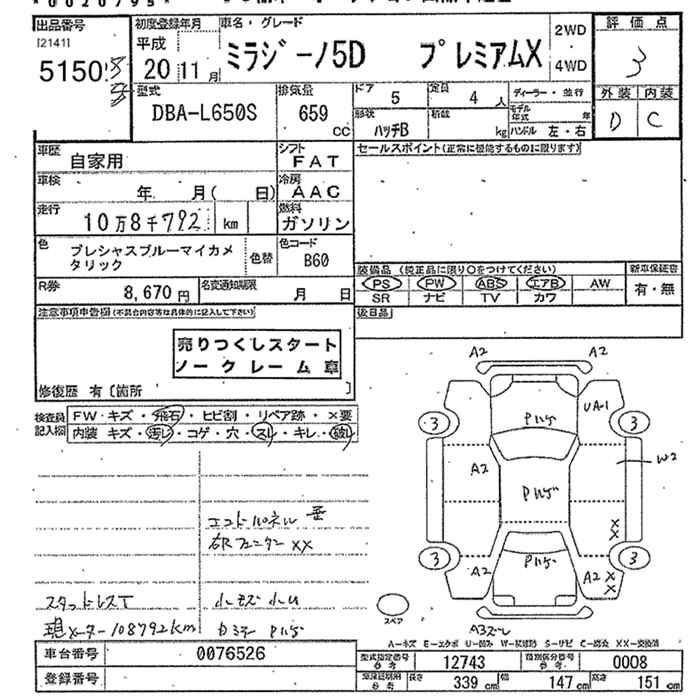 出品番号
[2141]
5150
初度登録年月
平成
20 11 月
車名・グレード
ミラジーノ5D プレミアムX
2WD
・
4WD
評価点
3
外装 内装
D C
型式
DBA-L650S
排気量
659
CC
ドア
5
定員
4 人
形状
ハッチB
積載
kg
ディーラー・並行
モデル年式 年
ハンドル 左・右
車歴
自家用
シフト
FAT
車検
年 月( 日)
冷房
AAC
走行
10万8千792 km
燃料
ガソリン
色
プレシャスブルーマイカメタリック
色替
色コード
B60
R券
8,670 円
名変通知期限
月 日
セールスポイント(正常に機能するものに限ります)
装備品 (純正品に限り○をつけてください)
PS PW ABS エアB AW
SR ナビ TV カワ
新車保証書
有・無
後日品
注意事項申告欄(不具合内容等は具体的に記入して下さい)
売りつくしスタート
ノークレーム 章
修復歴 有〔箇所 〕
検査員
記入欄
FW・キズ・飛石・ヒビ割・リペア跡・×要
内装 キズ・汚レ・コゲ・穴・スレ・キレ・破レ
右Rフェンダー XX
スタッドレスT
現メーター108792km
小キズ 小凹
A2 A2
UA1
3 3
A2
W2
XX
3 3
A2 A2 XX
スペア
A-キズ E-エクボ U-凹み W-板補修 S-サビ C-腐食 XX-交換済
車台番号
0076526
登録番号
型式指定番号
参考
12743
類別区分番号
参考
0008
長さ 339 cm
幅 147 cm
高さ 151 cm